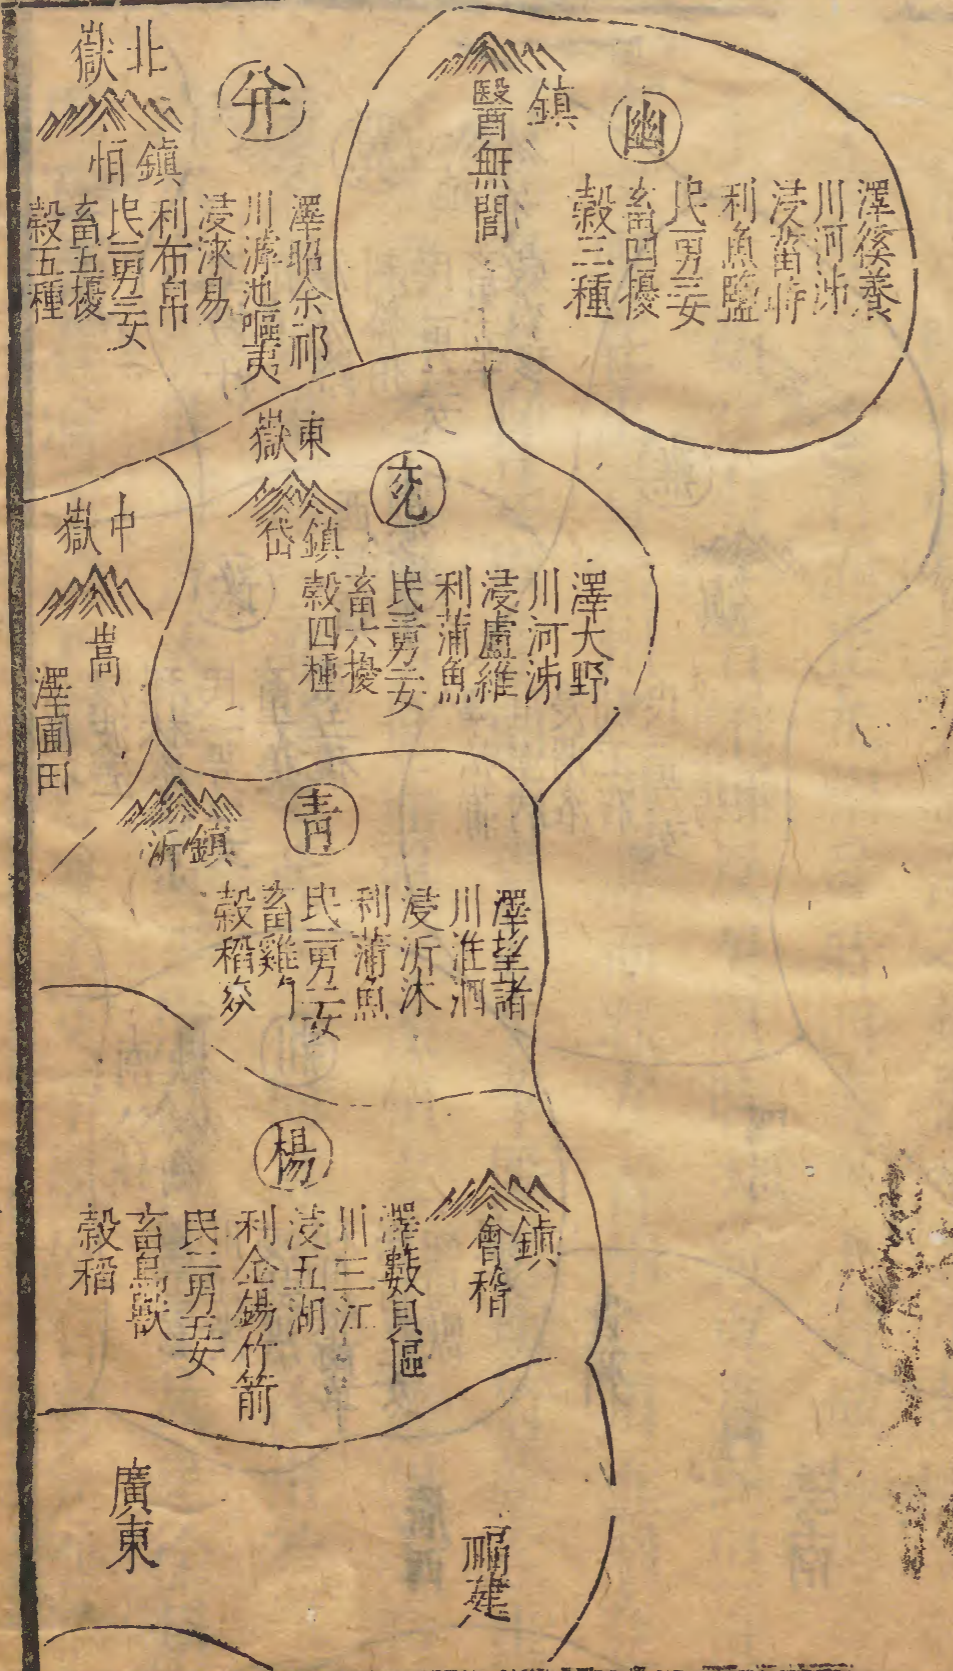 幽
鎮
醫無閭
澤傒養
川河泲
浸菑時
利魚鹽
民一男三女
畜四擾
穀三種
幷
北
嶽
鎮
恒
澤昭余祁
川滹池嘔夷
浸淶易
利布帛
民二男三女
畜五擾
穀五種
兗
東
嶽
鎮
岱
澤大野
川河泲
浸盧維
利蒲魚
民二男三女
畜六擾
穀四種
中
嶽
嵩
澤圃田
青
鎮
沂
澤望諸
川淮泗
浸沂沭
利蒲魚
民二男二女
畜雞
穀稻麥
楊
鎮
會稽
澤藪具區
川三江
浸五湖
利金錫竹箭
民二男五女
畜鳥獸
穀稻
福建
廣東